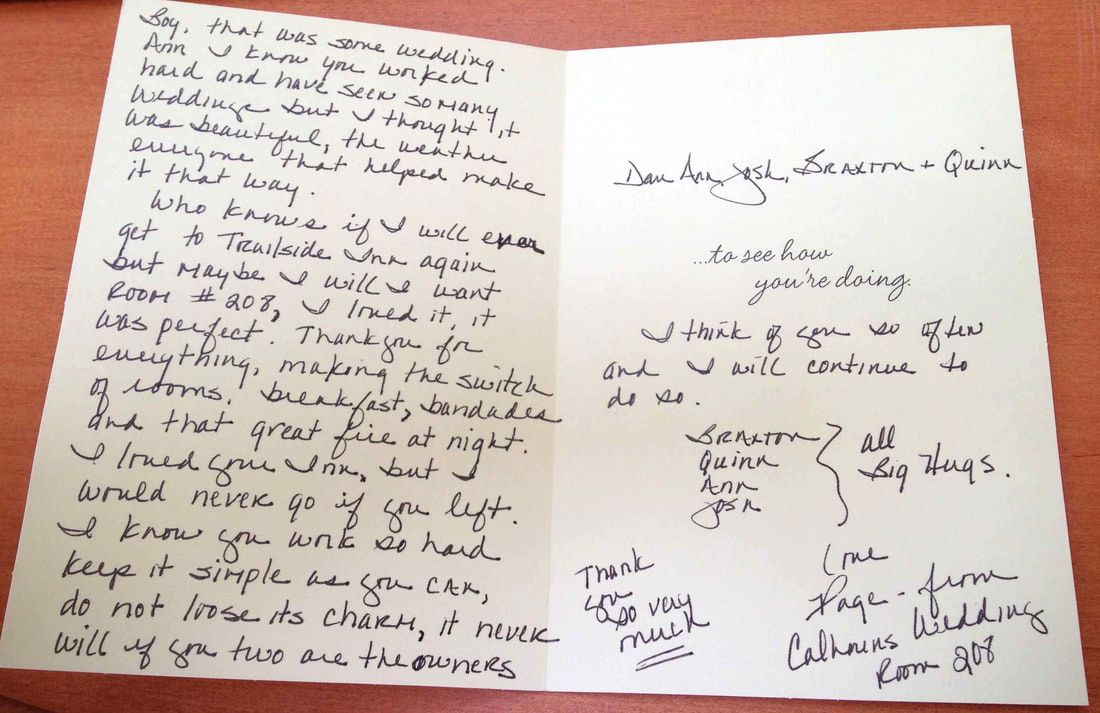 Boy, that was some wedding.
Ann I know you worked
hard and have seen so many
weddings but I thought it
was beautiful, the weather
everyone that helped make
it that way.
Who knows if I will ever
get to Trailside Inn again
but maybe I will I want
Room # 208, I loved it, it
was perfect. Thank you for
everything, making the switch
of rooms, breakfast, bandades
and that great fire at night.
I loved your Inn, but I
would never go if you left.
I know you work so hard
keep it simple as you can,
do not loose its charm, it never
will if you two are the owners
Dear Ann, Josh, Braxton + Quinn
...to see how
you're doing.
I think of you so often
and I will continue to
do so.
Braxton
Quinn
Ann
Josh
all
Big Hugs.
Thank
you
so very
much
Love
Page - from
Calhouns Wedding
Room 208